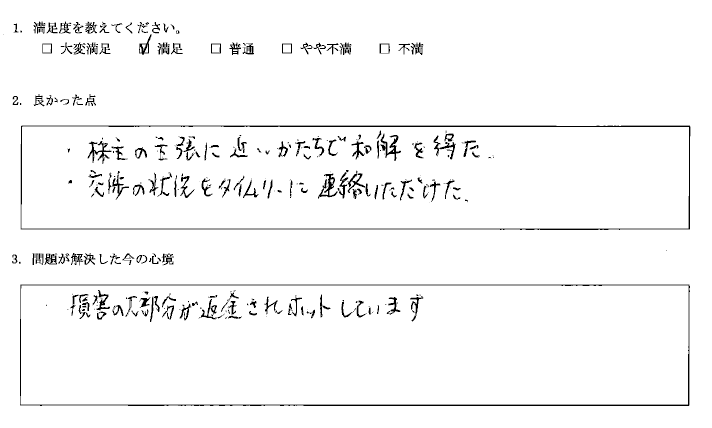 1. 満足度を教えてください。
□ 大変満足 ☑ 満足 □ 普通 □ やや不満 □ 不満
2. 良かった点
・株主の主張に近いかたちで和解を得た。
・交渉の状況をタイムリーに連絡いただけた。
3. 問題が解決した今の心境
・損害の大部分が返金されホットしています